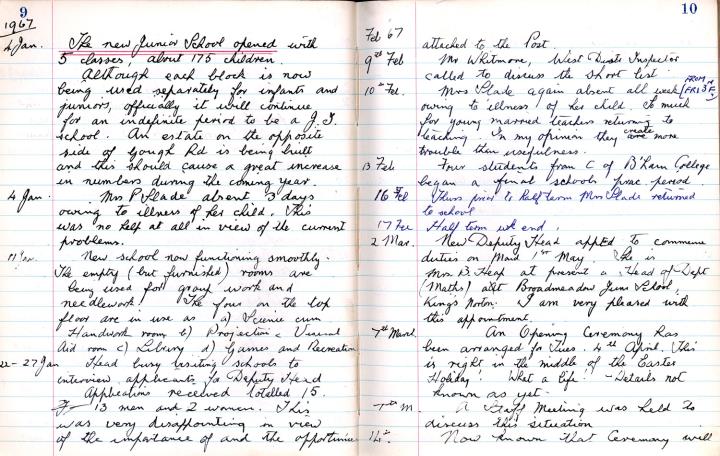 9
1967
4 Jan. The new Junior School opened with
5 classes, about 175 children.
Although each block is now
being used separately for infants and
juniors, officially it will continue
for an indefinite period to be a J.I.
school. An estate on the opposite
side of Gough Rd is being built
and this should cause a great increase
in numbers during the coming year.
4 Jan. Mrs P Slade absent 3 days
owing to illness of her child. This
was no help at all in view of the current
problems.
11 Jan. New school now functioning smoothly.
The empty (but furnished) rooms are
being used for group work and
needlework. The four on the top
floor are in use as a) Science cum
Handwork room b) Projection & Visual
Aid room c) Library d) Games and Recreation
22-27 Jan Head busy visiting schools to
interview applicants for Deputy Head
Applications received totalled 15.
13 men and 2 women. This
was very disappointing in view
of the importance of and the opportunities
10
Feb 67 attached to the Post.
9th Feb Mr Whitmore, West Dists Inspector
called to discuss the short list.
10th Feb. Mrs Slade again absent all week (FROM FRI 3rd F)
owing to illness of her child. So much
for young married teachers returning to
teaching. In my opinion they create more
trouble than usefulness.
13 Feb Four students from C of B'ham College
began a final schools prac. period.
16 Feb Thurs prior to half term Mrs Slade returned
to school
17 Feb Half term wk end.
2 Mar. New Deputy Head appted to commence
duties on Mond 1st May. She is
Mrs B. Heap at present a Head of Dept
(Maths) at Broadmeadow Junr School,
King's Norton. I am very pleased with
this appointment.
7th March An Opening Ceremony has
been arranged for Tues. 4th April. This
is right in the middle of the Easter
Holiday! What a life! - Details not
known as yet.
7th M. A Staff Meeting was held to
discuss this situation
14th. Now known that Ceremony will